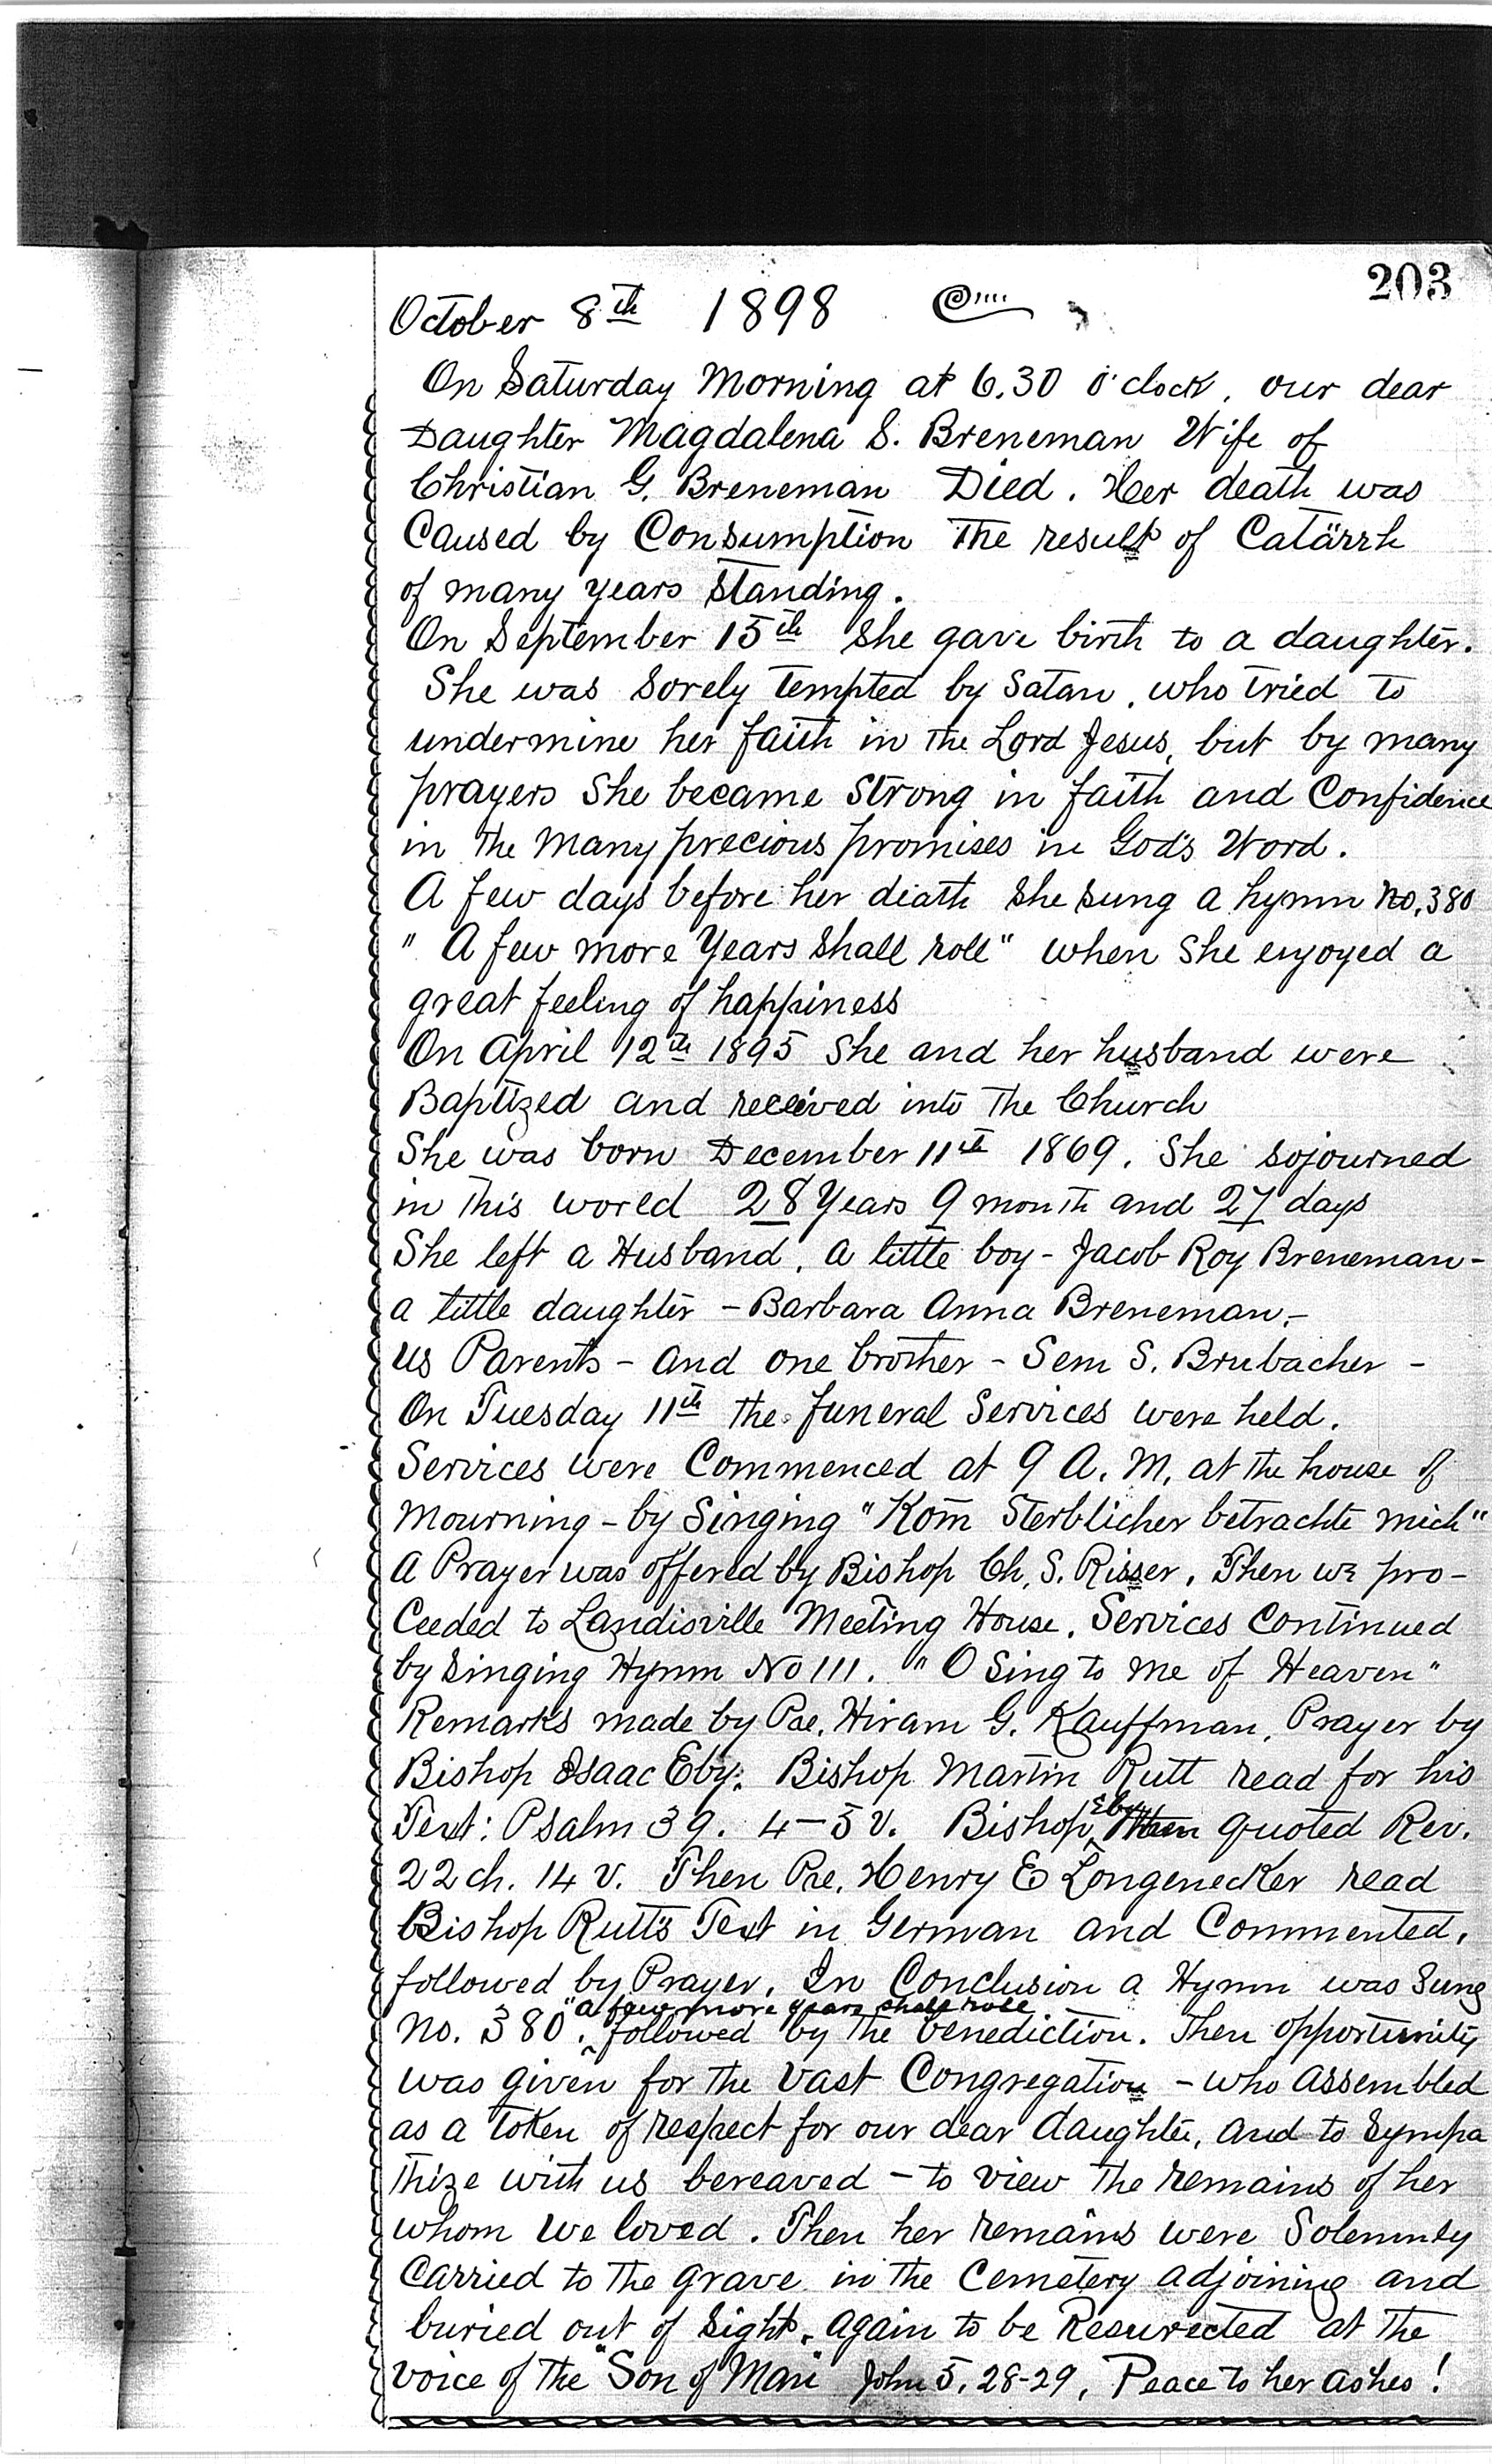 203
October 8th 1898
On Saturday Morning at 6.30 o'clock, our dear
Daughter Magdalena S. Breneman Wife of
Christian G. Breneman Died. Her death was
Caused by Consumption The result of Catärrh
of many years standing.
On September 15th She gave birth to a daughter.
She was Sorely Tempted by Satan, who tried to
undermine her faith in the Lord Jesus, but by many
prayers She became Strong in faith and Confidence
in The Many precious promises in God's Word.
A few days before her death She sung a hymn No. 380
" A few more Years Shall roll" when She enjoyed a
great feeling of happiness
On April 12th 1895 She and her husband were
Baptized and received into The Church
She was born December 11th 1869. She sojourned
in This world 28 Years 9 month and 27 days
She left a Husband, a little boy - Jacob Roy Breneman -
a little daughter - Barbara Anna Breneman, -
us Parents - and one brother - Sem S. Brubacher -
On Tuesday 11th the funeral Services were held.
Services were Commenced at 9 A. M. at the house of
Mourning - by Singing "Kom̄ Sterblicher betrachte mich"
A Prayer was offered by Bishop Ch. S. Risser. Then we pro-
Ceeded to Landisville Meeting House. Services Continued
by Singing Hymn No 111. "O Sing to me of Heaven"
Remarks made by Pre. Hiram G. Kauffman, Prayer by
Bishop Isaac Eby. Bishop Martin Rutt read for his
Text: Psalm 39. 4-5 v. Bishop Eby then quoted Rev.
22 ch. 14 v. Then Pre. Henry E Longenecker read
Bishop Rutt's Text in German and Commented,
followed by Prayer. In Conclusion a Hymn was Sung
No. 380 "A few more years shall roll". followed by The benediction. Then opportunity
was given for The vast Congregation - who assembled
as a Token of respect for our dear daughter, and to Sympa
thize with us bereaved - to view The remains of her
whom we loved. Then her remains were Solemnly
Carried to The grave in The Cemetery adjoining and
buried out of Sight, again to be Resurrected at The
voice of The "Son of Man" John 5, 28-29, Peace to her Ashes!